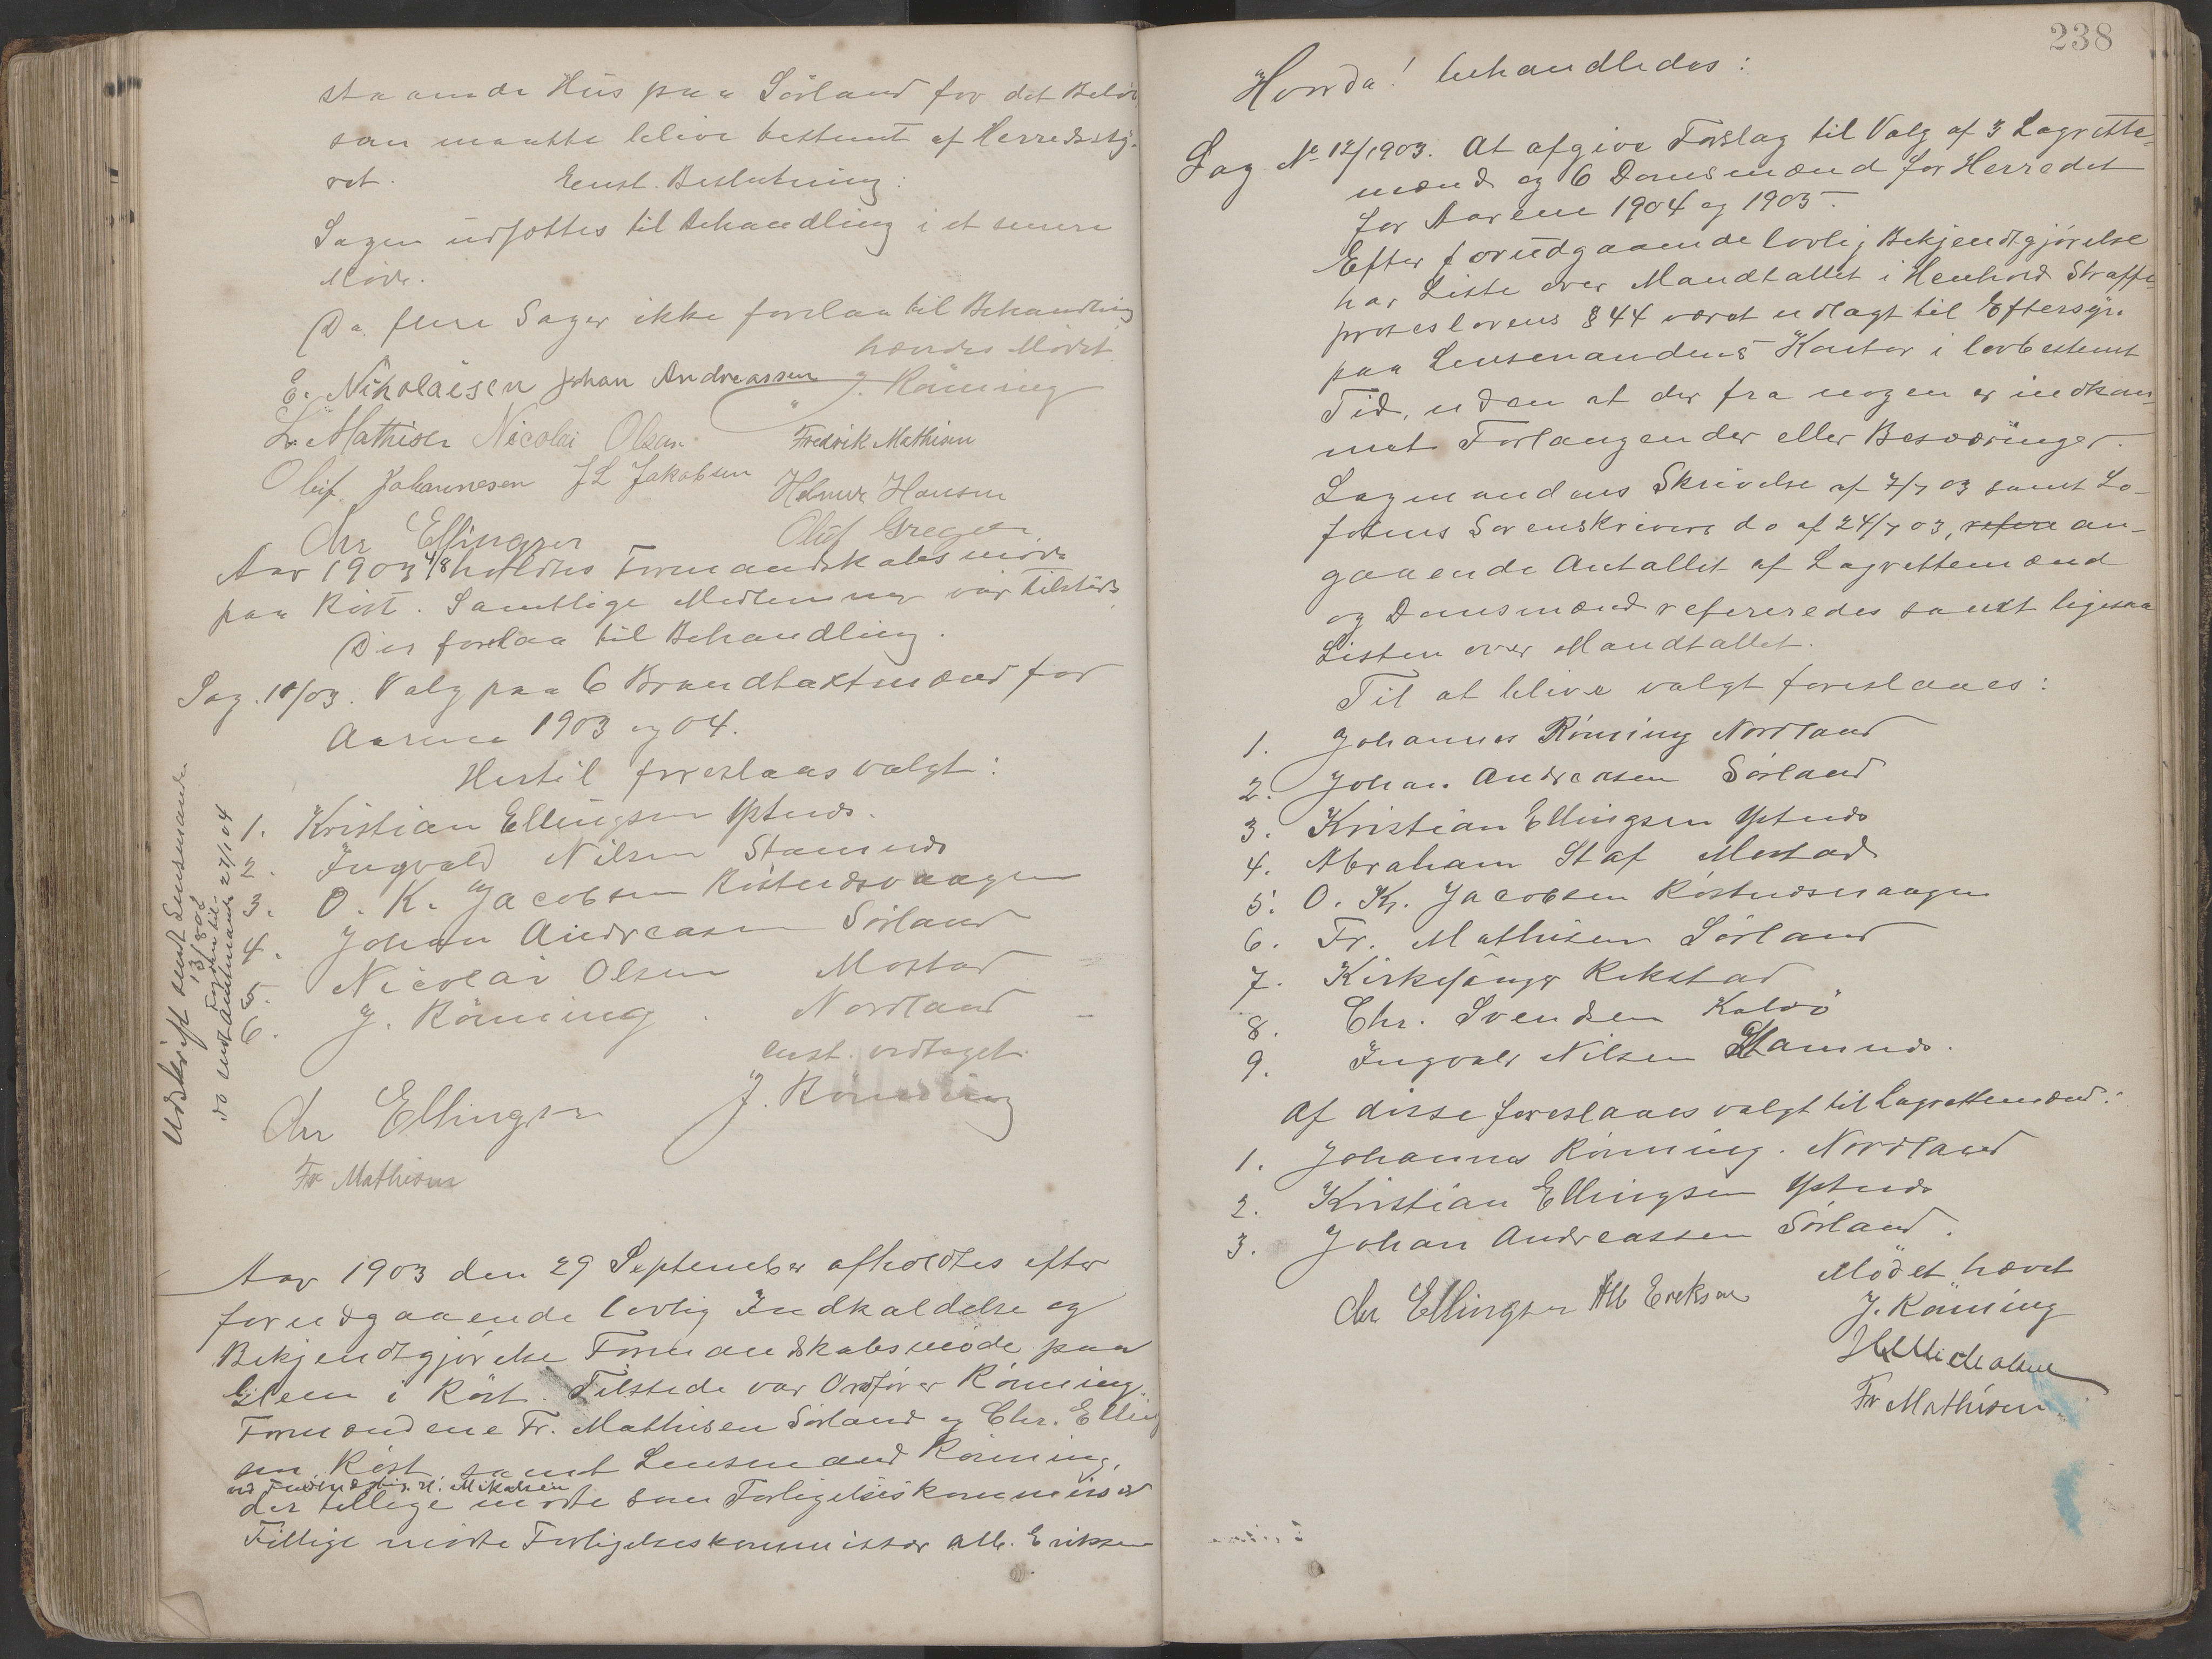 staaende Hus paa Sörland for det Belöb
som maatte blive bestemt af Herredssty-
ret. Enst. Beslutning:
Sagen udsættes til Behandling i et senere
Möde.
Da flere Sager ikke forelaa til Behandling
hævedes Mödet.
E. Nikolaisen Johan Andreassen J. Röning
L. Mathisen Nicolai Olsen Fredrik Mathisen
Oluf Johannesen J L Jakobsen Helmer Hansen
Chr Ellingsen Oluf Greger
Aar 1903 4/8 holdtes Formandskabsmöde
paa Röst. Samtlige Medlemmer var tilstede
Der forelaa til Behandling.
Sag. 11/03. Valg paa 6 Brandtaxtmænd for
Aarene 1903 og 04.
Hertil foreslaaes valgt:
1. Kristian Ellingsen Ystnes.
2. Ingvald Nilsen Stamnes
3. O. K. Jacobsen Röstnesvaagen
4. Johan Andreasen Sörland
5. Nicolai Olsen Mostad
6. J. Röning Nordland
enst. vedtaget.
Chr Ellingsen J. Rönning
Fr Mathisen
Udskrift sendt Lensmanden
do endt Amtmanden 27/1 04
Aar 1903 den 29 September afholdtes efter
forudgaaende lovlig Indkaldelse og
Bekjendtgjörelse Formandskabsmöde paa
Glea i Röst. Tilstede var Ordförer Rönning
Formændene Fr. Mathisen Sörland og Chr. Elling
sen Röst samt Lensmand Rönning,
der tillige mödte som Forligelseskommissær
Tillige mödte Forligelseskommissær Alb. Eriksen
238
Hvorda! behandledes:
Sag No 12/1903. At afgive Forslag til Valg af 3 Lagrette-
mænd og 6 Domsmænd for Herredet
for Aarene 1904 og 1905.
Efter forudgaaende lovlig Bekjendtgjörelse
har Liste over Mandtallet i Henhold Straffe-
proseslovens § 44 været udlagt til Eftersyn
paa Lensmandens Kontor i lovbestemt
Tid, uden at der fra nogen er indkom-
met Forlangender eller Besværinger.
Lagmandens Skrivelse af 7/7 03 samt Lo-
fotens Sorenskrivers do af 24/7 03, refere an-
gaaende Antallet af Lagrettemænd
og Domsmænd refereredes samt ligesaa
Listen over Mandtallet.
Til at blive valgt foreslaaes:
1. Johannes Rönning Nordland
2. Johan Andreasen Sörland
3. Kristian Ellingsen Ystnes
4. Abraham Staf Mostad
5. O. Kr. Jacobsen Röstnesvaagen
6. Fr. Mathisen Sörland
7. Kirkesanger Rekstad
8. Chr. Svendsen Kalvö
9. Ingvald Nilsen Stamnes.
Af disse foreslaaes valgt til Lagrettemænd:
1. Johannes Rönning. Nordland
2. Kristian Ellingsen Ystnes
3. Johan Andreassen Sörland.
Mödet hævet
Chr Ellingsen Alb Eriksen J. Röning
Fr Mathisen